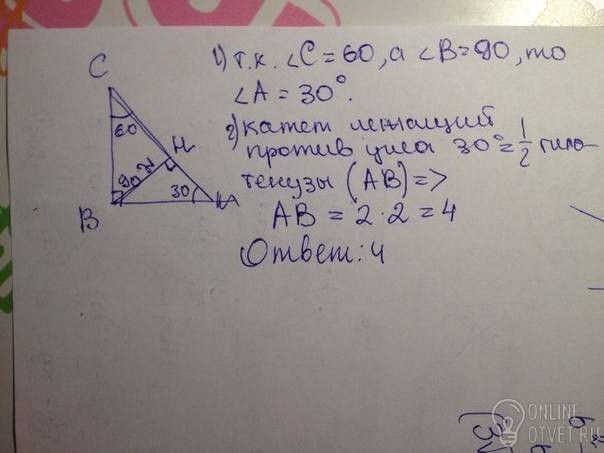 1) т.к. ∠C = 60, а ∠B = 90, то
∠A = 30°.
2) катет лежащий
против угла 30° = 1/2 гипо-
тенузы (AB) =>
AB = 2·2 = 4
Ответ: 4
C
60
H
2
90
30
A
B
ONLINE
OTVET.RU